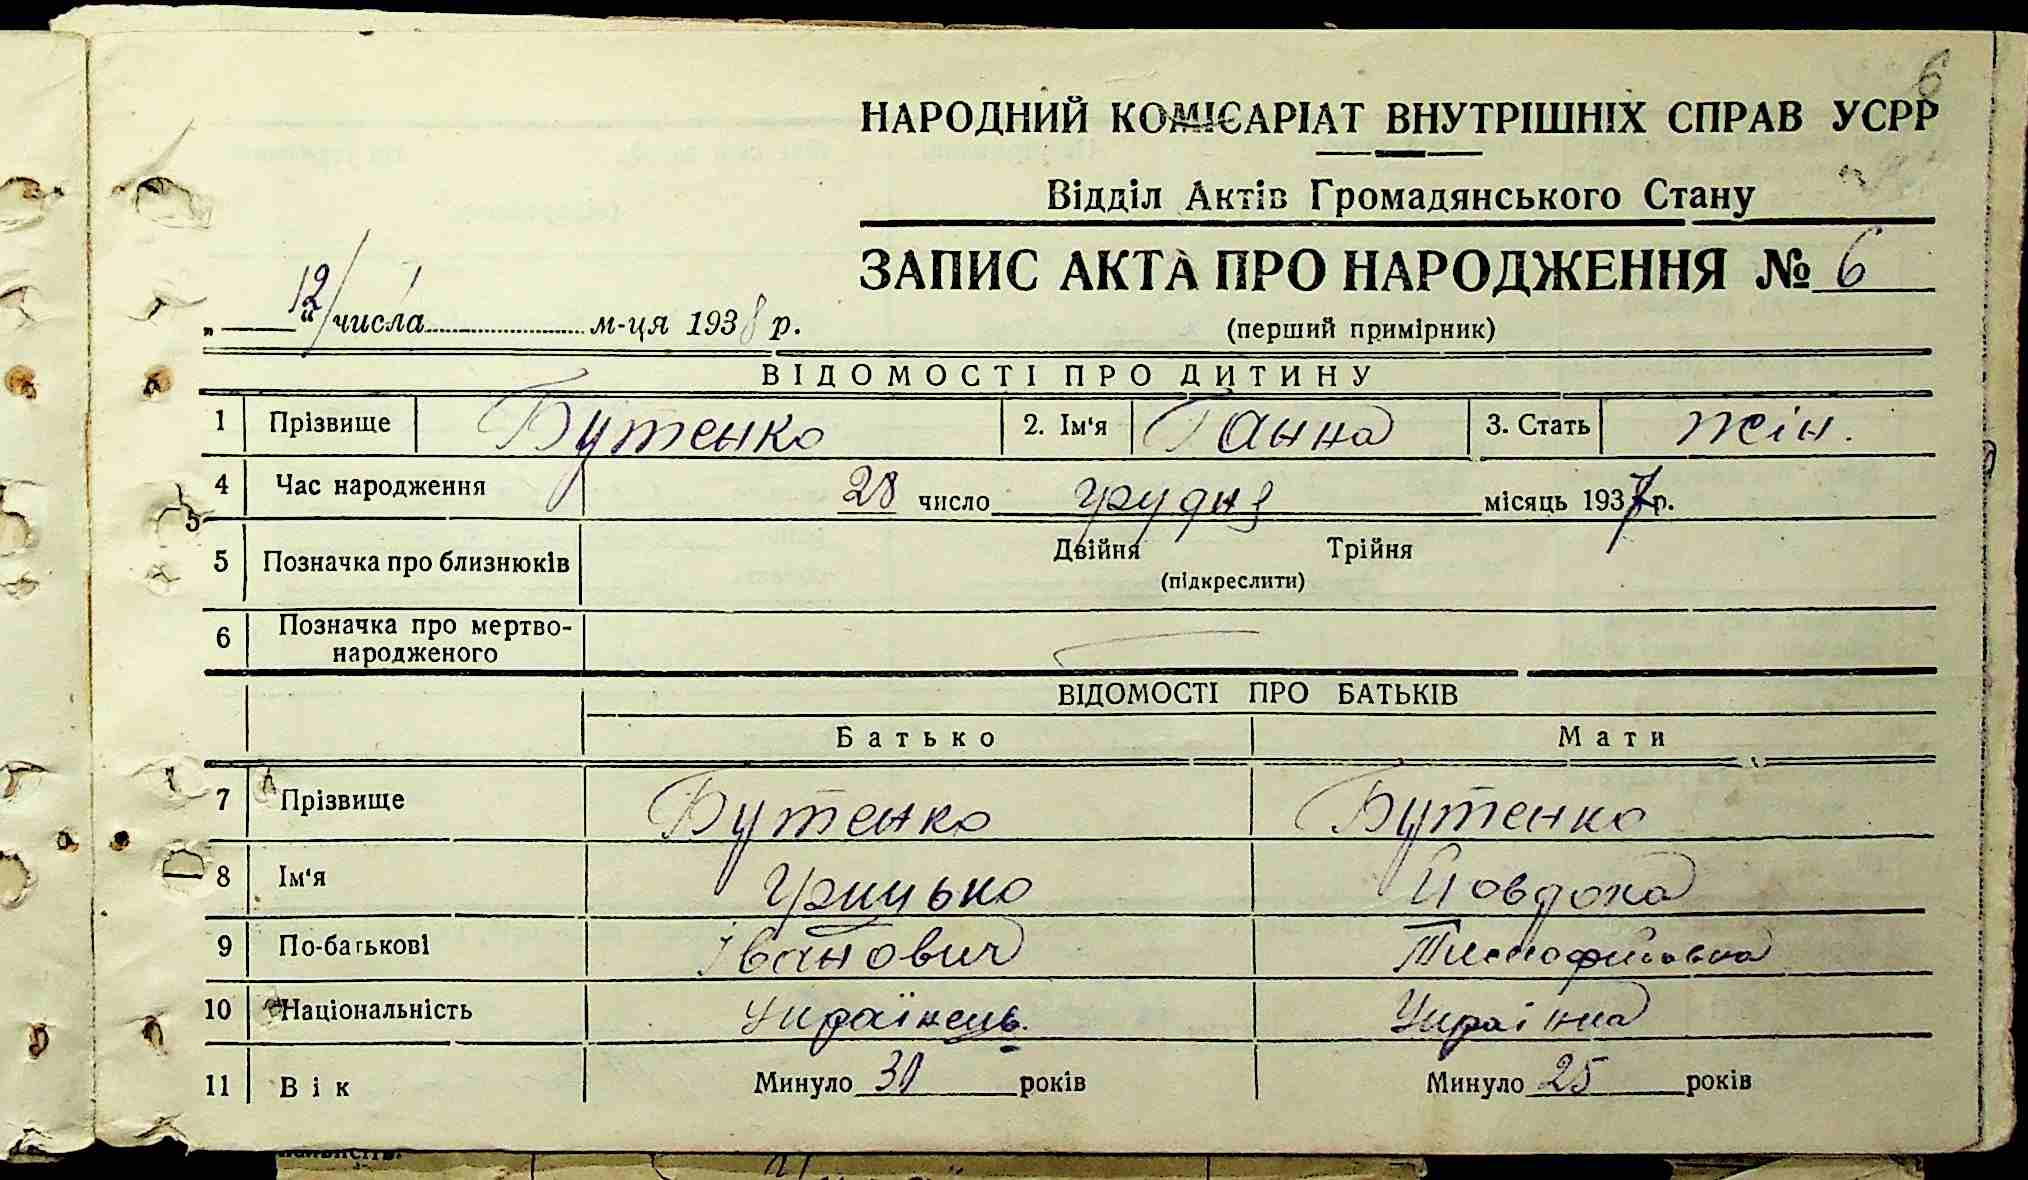 6
НАРОДНИЙ КОМІСАРІАТ ВНУТРІШНІХ СПРАВ УСРР
Відділ Актів Громадянського Стану
ЗАПИС АКТА ПРО НАРОДЖЕННЯ № 6
„ 12 “ числа 1 м-ця 1938 р.
(перший примірник)
ВІДОМОСТІ ПРО ДИТИНУ
1 Прізвище Бутенко 2. Ім'я Ганна 3. Стать жін.
4 Час народження 28 число грудня місяць 1937 р.
5 Позначка про близнюків Двійня Трійня
(підкреслити)
6 Позначка про мертво-
народженого
ВІДОМОСТІ ПРО БАТЬКІВ
Батько Мати
7 Прізвище Бутенко Бутенко
8 Ім'я Грицько Йовдоха
9 По-батькові Іванович Тимофіївна
10 Національність Українець Українка
11 Вік Минуло 31 років Минуло 25 років